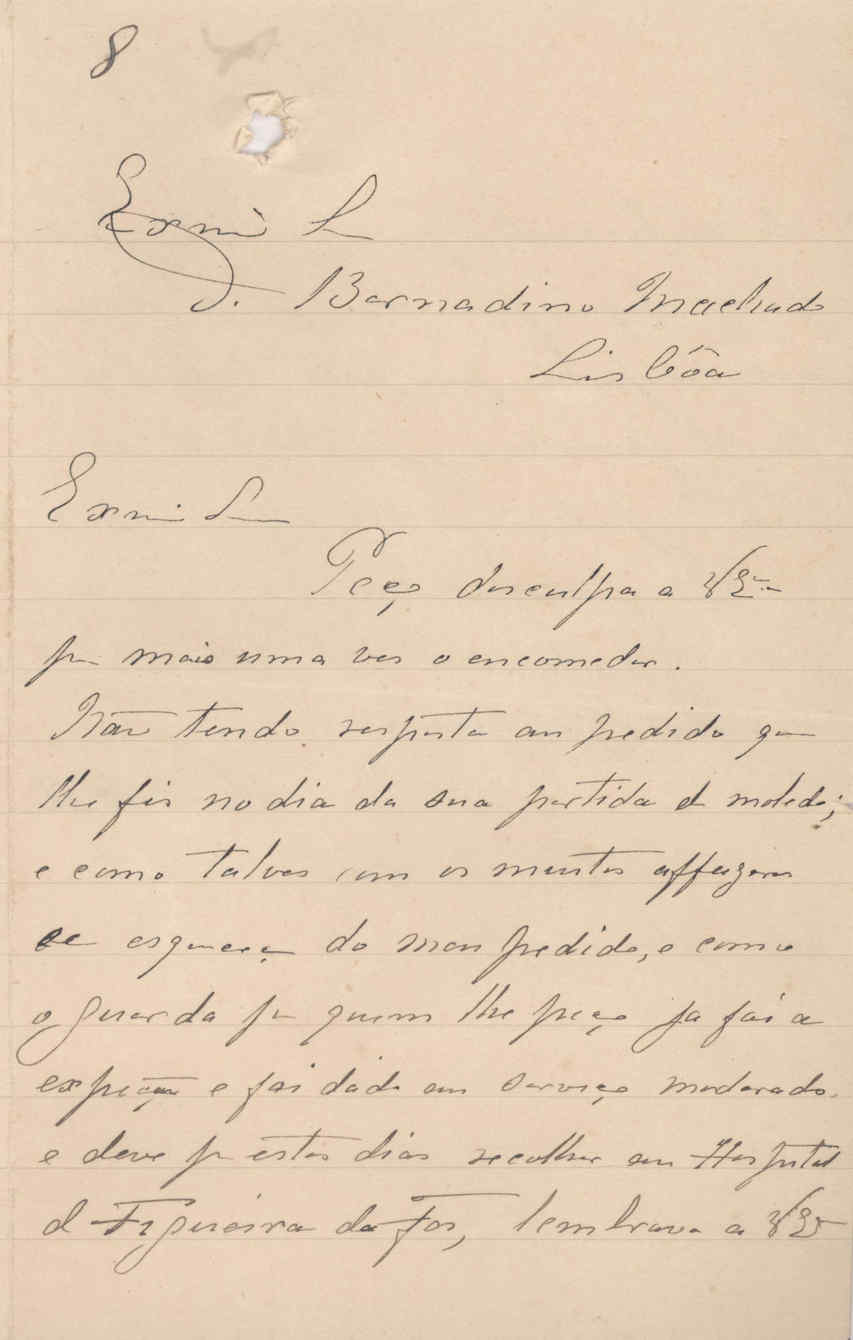 8
Exmo Sr
D. Bernadino Machado
Lisbôa
Exmo Sr
Peço desculpa a V Exa
por mais uma ves o encomedar.
Não tendo resposta ao pedido que
lhe fis no dia da sua partida de moledo;
e como talves com os muitos affazeres
se esqueceça do meu pedido, e como
o guarda por quem lhe peço ja foi a
expeção e foi dado em serviço moderado.
e deve por estes dias recolher ao Hospital
de Figueira da Fos, lembrava a V Ex